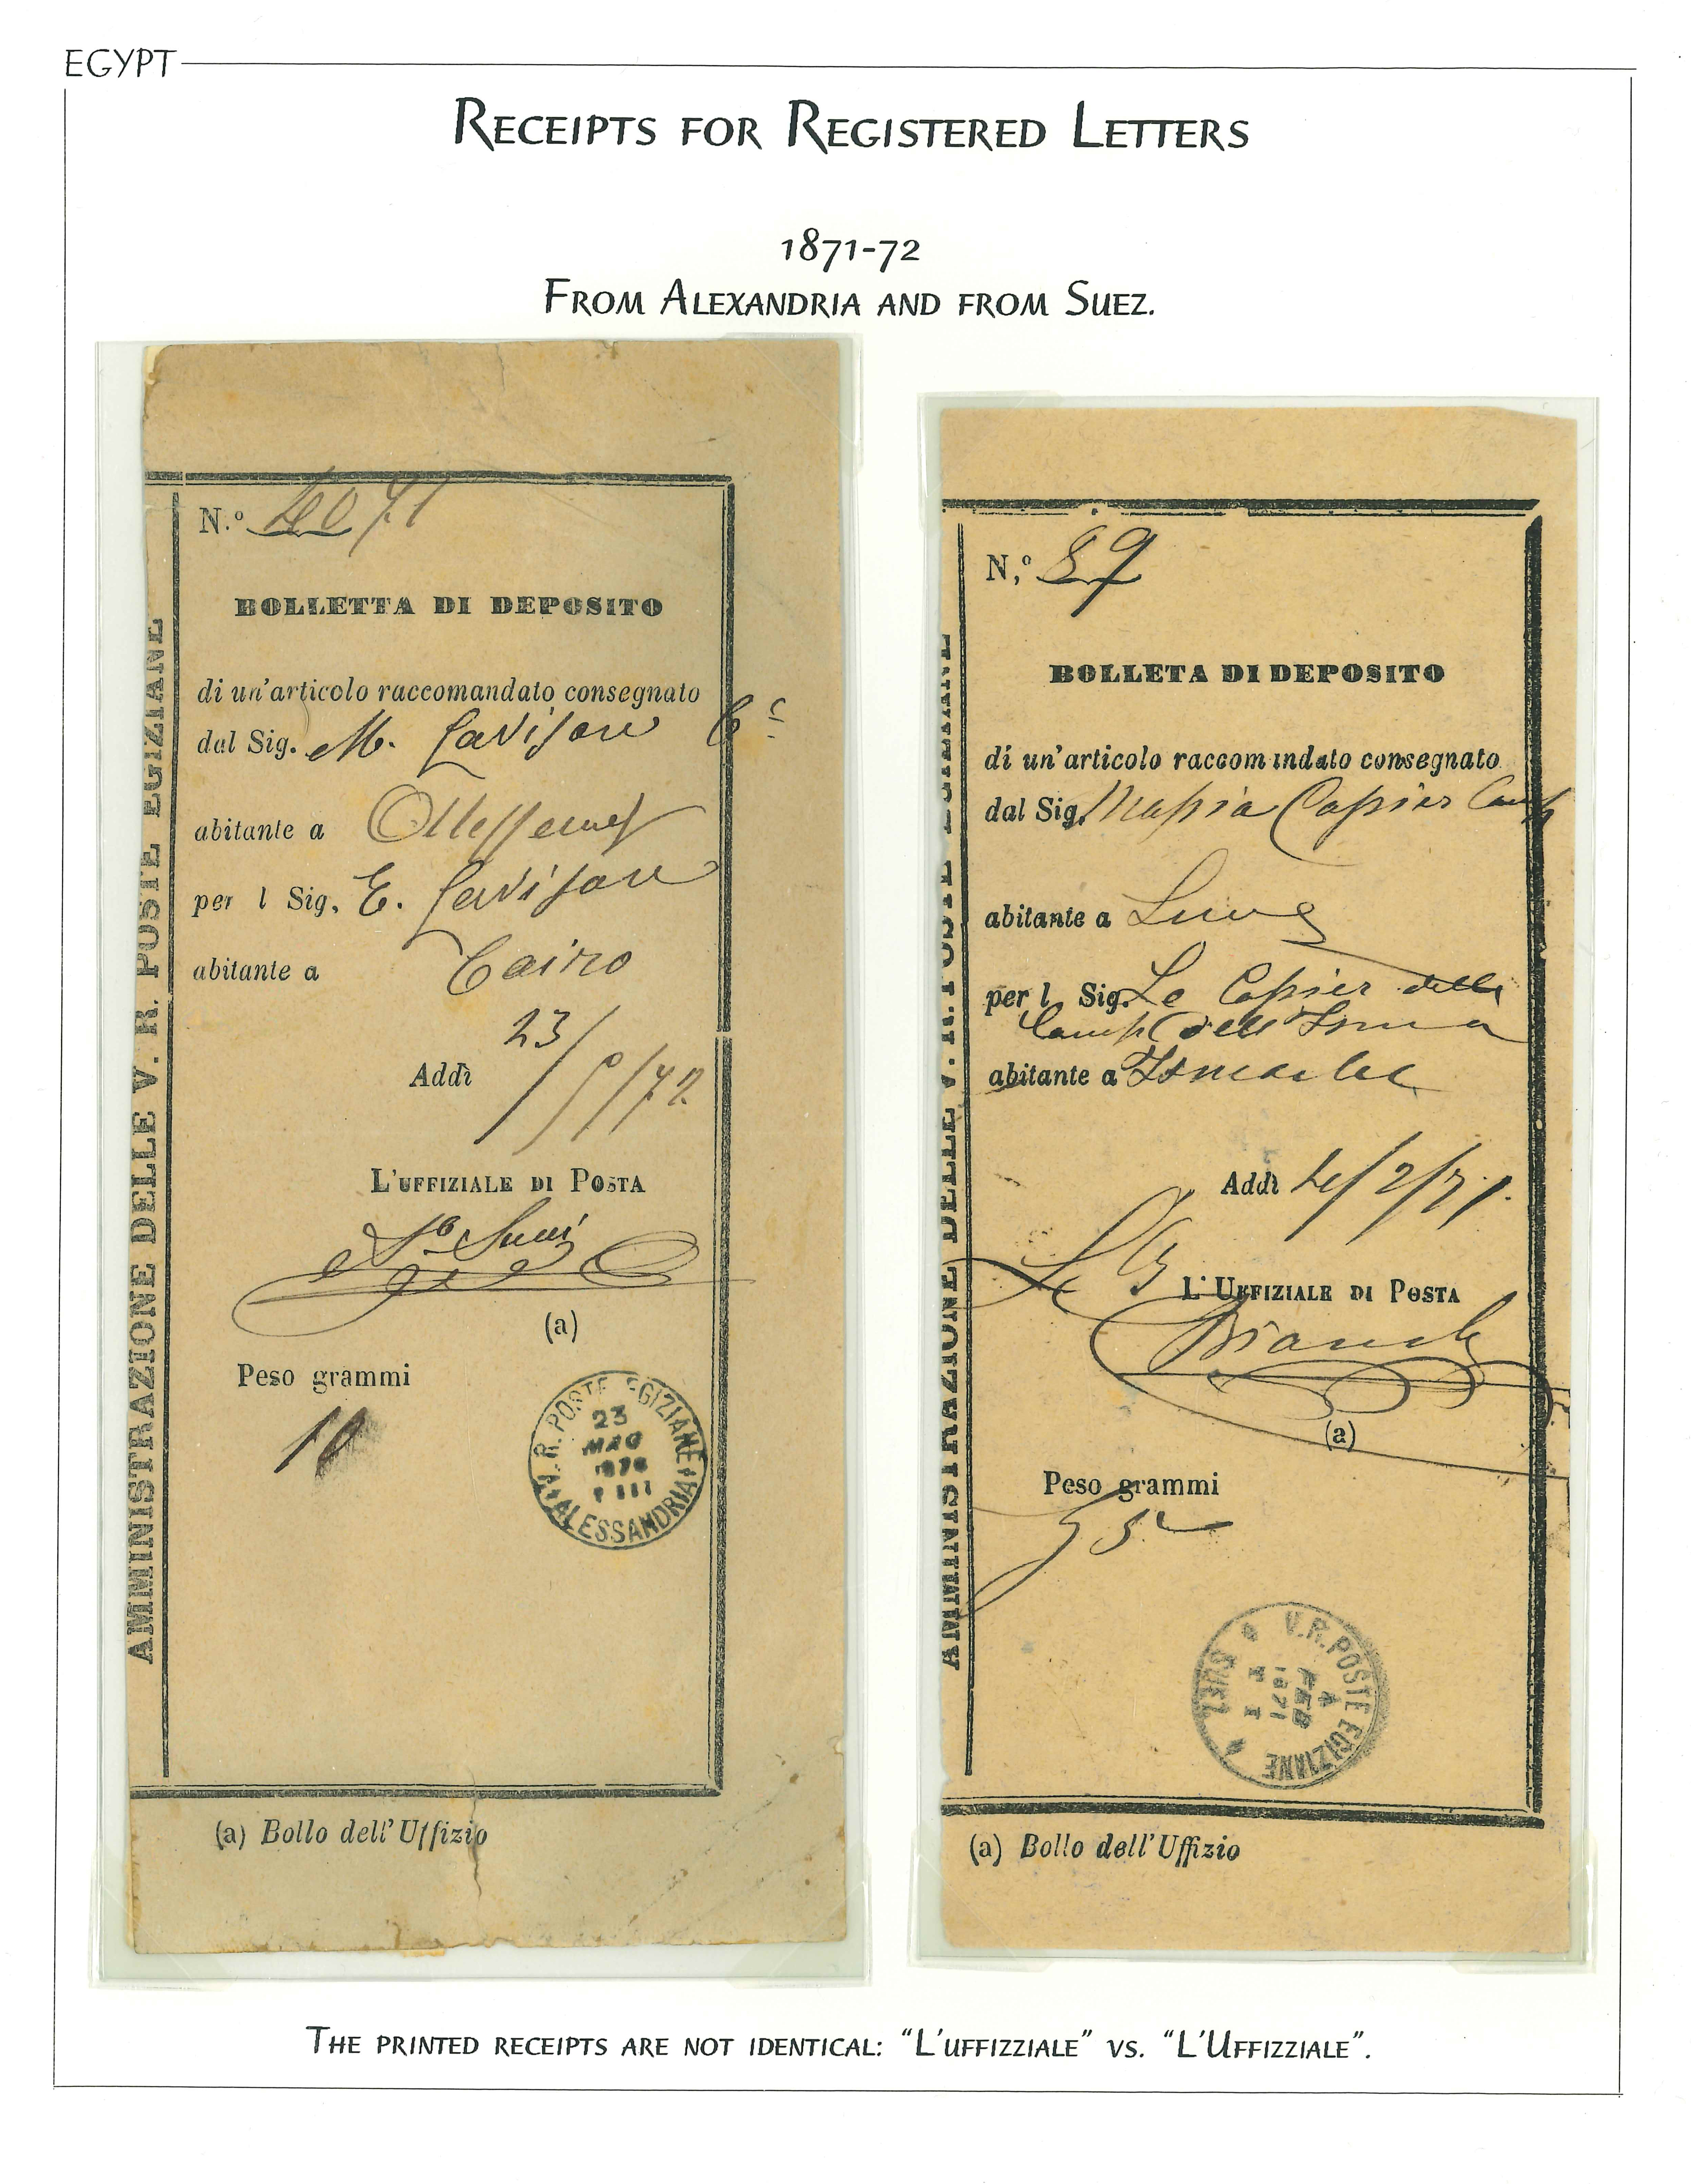 EGYPT
RECEIPTS FOR REGISTERED LETTERS
1871-72
FROM ALEXANDRIA AND FROM SUEZ.
AMMINISTRAZIONE DELLE V. R. POSTE EGIZIANE
N.º 4071
BOLLETTA DI DEPOSITO
di un'articolo raccomandato consegnato
dal Sig. M. Lavison Cº
abitante a
per l Sig. E. Lavison
abitante a Cairo
Addì 23/5/72
L'UFFIZIALE DI POSTA
(a)
Peso grammi
10
V. R. POSTE EGIZIANE
23
MAG
ALESSANDRIA
(a) Bollo dell'Uffizio
AMMINISTRAZIONE DELLE V. R. POSTE EGIZIANE
N,º 89
BOLLETA DI DEPOSITO
di un'articolo raccomandato consegnato
dal Sig.
abitante a Suez
per l Sig.
abitante a
Addì 4/2/71.
L'UFFIZIALE DI POSTA
(a)
Peso grammi
V.R. POSTE EGIZIANE
4
FEB
1871
SUEZ
(a) Bollo dell'Uffizio
THE PRINTED RECEIPTS ARE NOT IDENTICAL: "L'UFFIZZIALE" VS. "L'UFFIZZIALE".